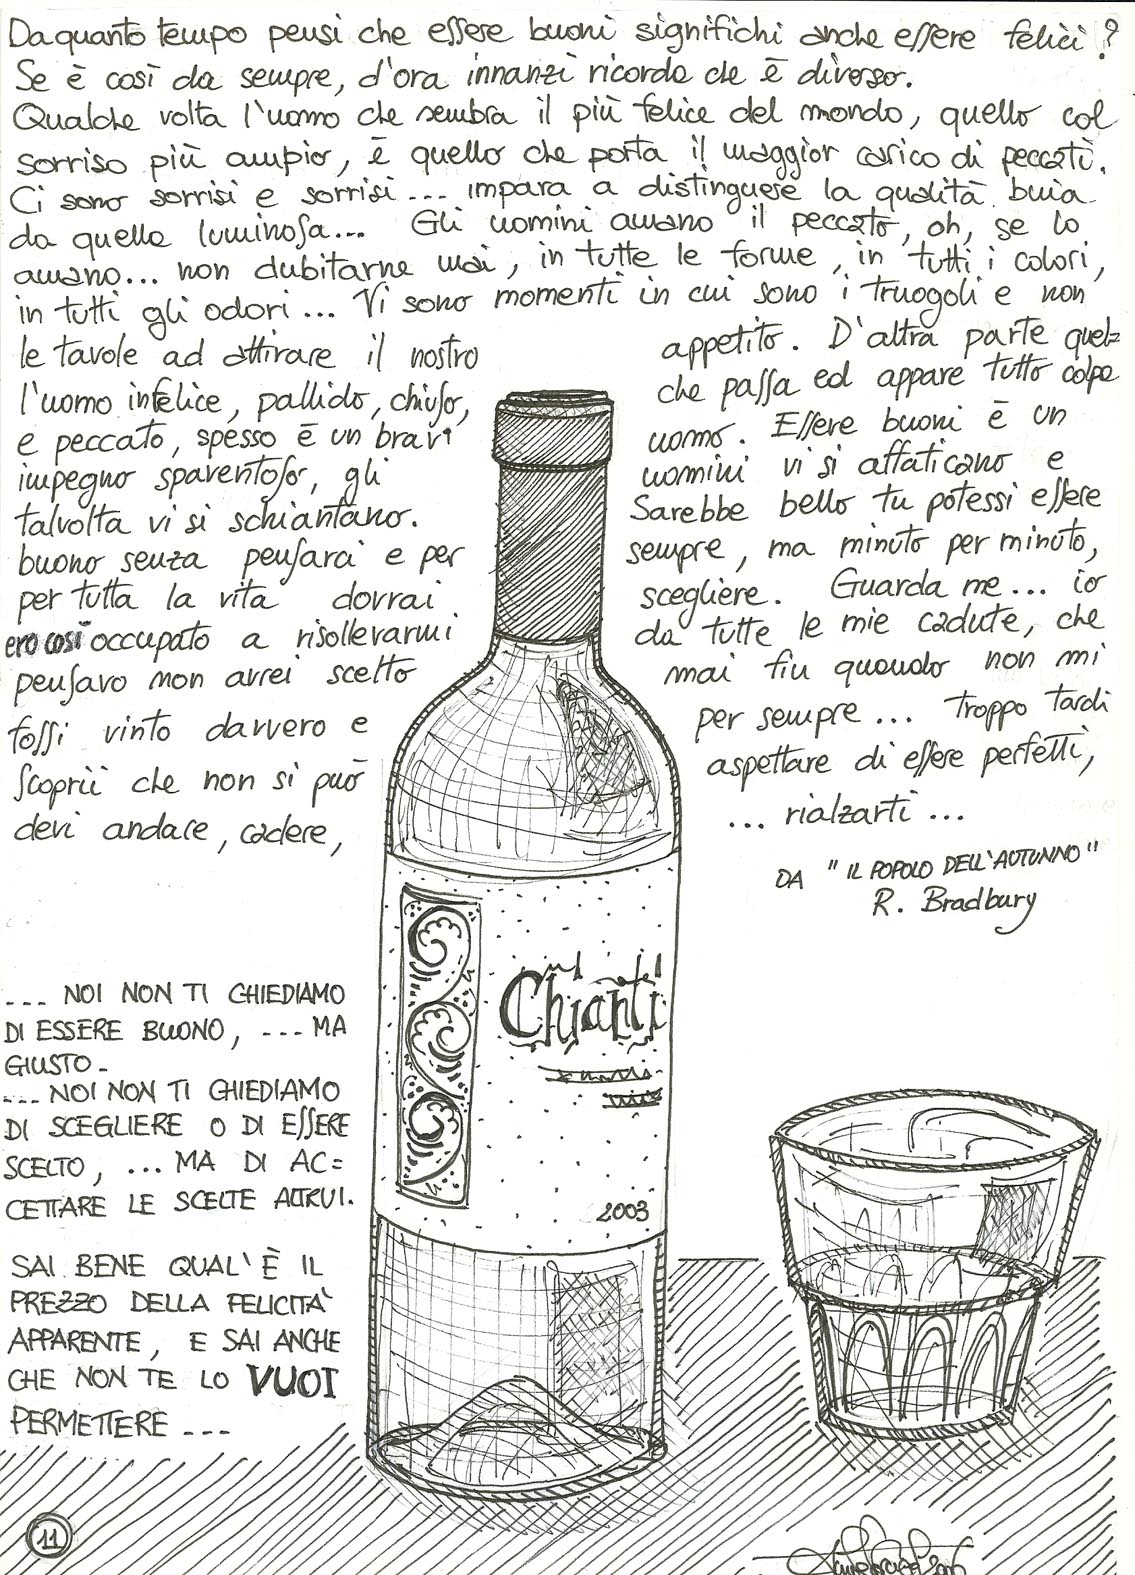 Da quanto tempo pensi che essere buoni significhi anche essere felici?
Se è così da sempre, d'ora innanzi ricorda che è diverso.
Qualche volta l'uomo che sembra il più felice del mondo, quello col
sorriso più ampio, è quello che porta il maggior carico di peccati.
Ci sono sorrisi e sorrisi... impara a distinguere la qualità buia
da quella luminosa... Gli uomini amano il peccato, oh, se lo
amano... non dubitarne mai, in tutte le forme, in tutti i colori,
in tutti gli odori... Vi sono momenti in cui sono i truogoli e non
le tavole ad attirare il nostro appetito. D'altra parte quel=
l'uomo infelice, pallido, chiuso, che passa ed appare tutto colpa
e peccato, spesso è un brav' uomo. Essere buoni è un
impegno spaventoso, gli uomini vi si affaticano e
talvolta vi si schiantano. Sarebbe bello tu potessi essere
buono senza pensarci e per sempre, ma minuto per minuto,
per tutta la vita dovrai scegliere. Guarda me... io
ero così occupato a risollevarmi da tutte le mie cadute, che
pensavo non avrei scelto mai fin quando non mi
fossi vinto davvero e per sempre... troppo tardi
scoprii che non si può aspettare di essere perfetti,
devi andare, cadere, ... rialzarti ...
DA "IL POPOLO DELL'AUTUNNO"
R. Bradbury
Chianti
2003
... NOI NON TI CHIEDIAMO
DI ESSERE BUONO, ... MA
GIUSTO.
... NOI NON TI CHIEDIAMO
DI SCEGLIERE O DI ESSERE
SCELTO, ... MA DI AC=
CETTARE LE SCELTE ALTRUI.
SAI BENE QUAL'È IL
PREZZO DELLA FELICITÀ
APPARENTE, E SAI ANCHE
CHE NON TE LO VUOI
PERMETTERE ...
11